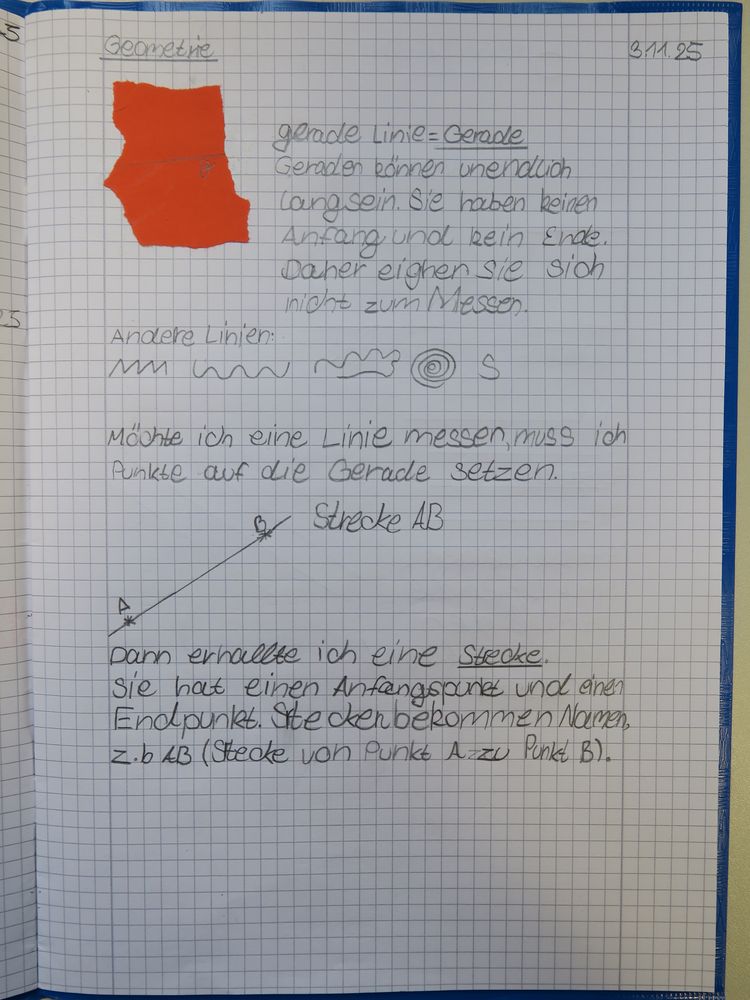 Geometrie
3.11.25
gerade Linie = Gerade
Geraden können unendlich
lang sein. Sie haben keinen
Anfang und kein Ende.
Daher eighen sie sich
nicht zum Messen.
Andere Linien:
Möchte ich eine Linie messen, muss ich
Punkte auf die Gerade setzen.
B
Strecke AB
A
Dann erhallte ich eine Strecke.
Sie hat einen Anfangspunkt und einen
Endpunkt. Stecken bekommen Namen,
z.b AB (Stecke von Punkt A zu Punkt B).